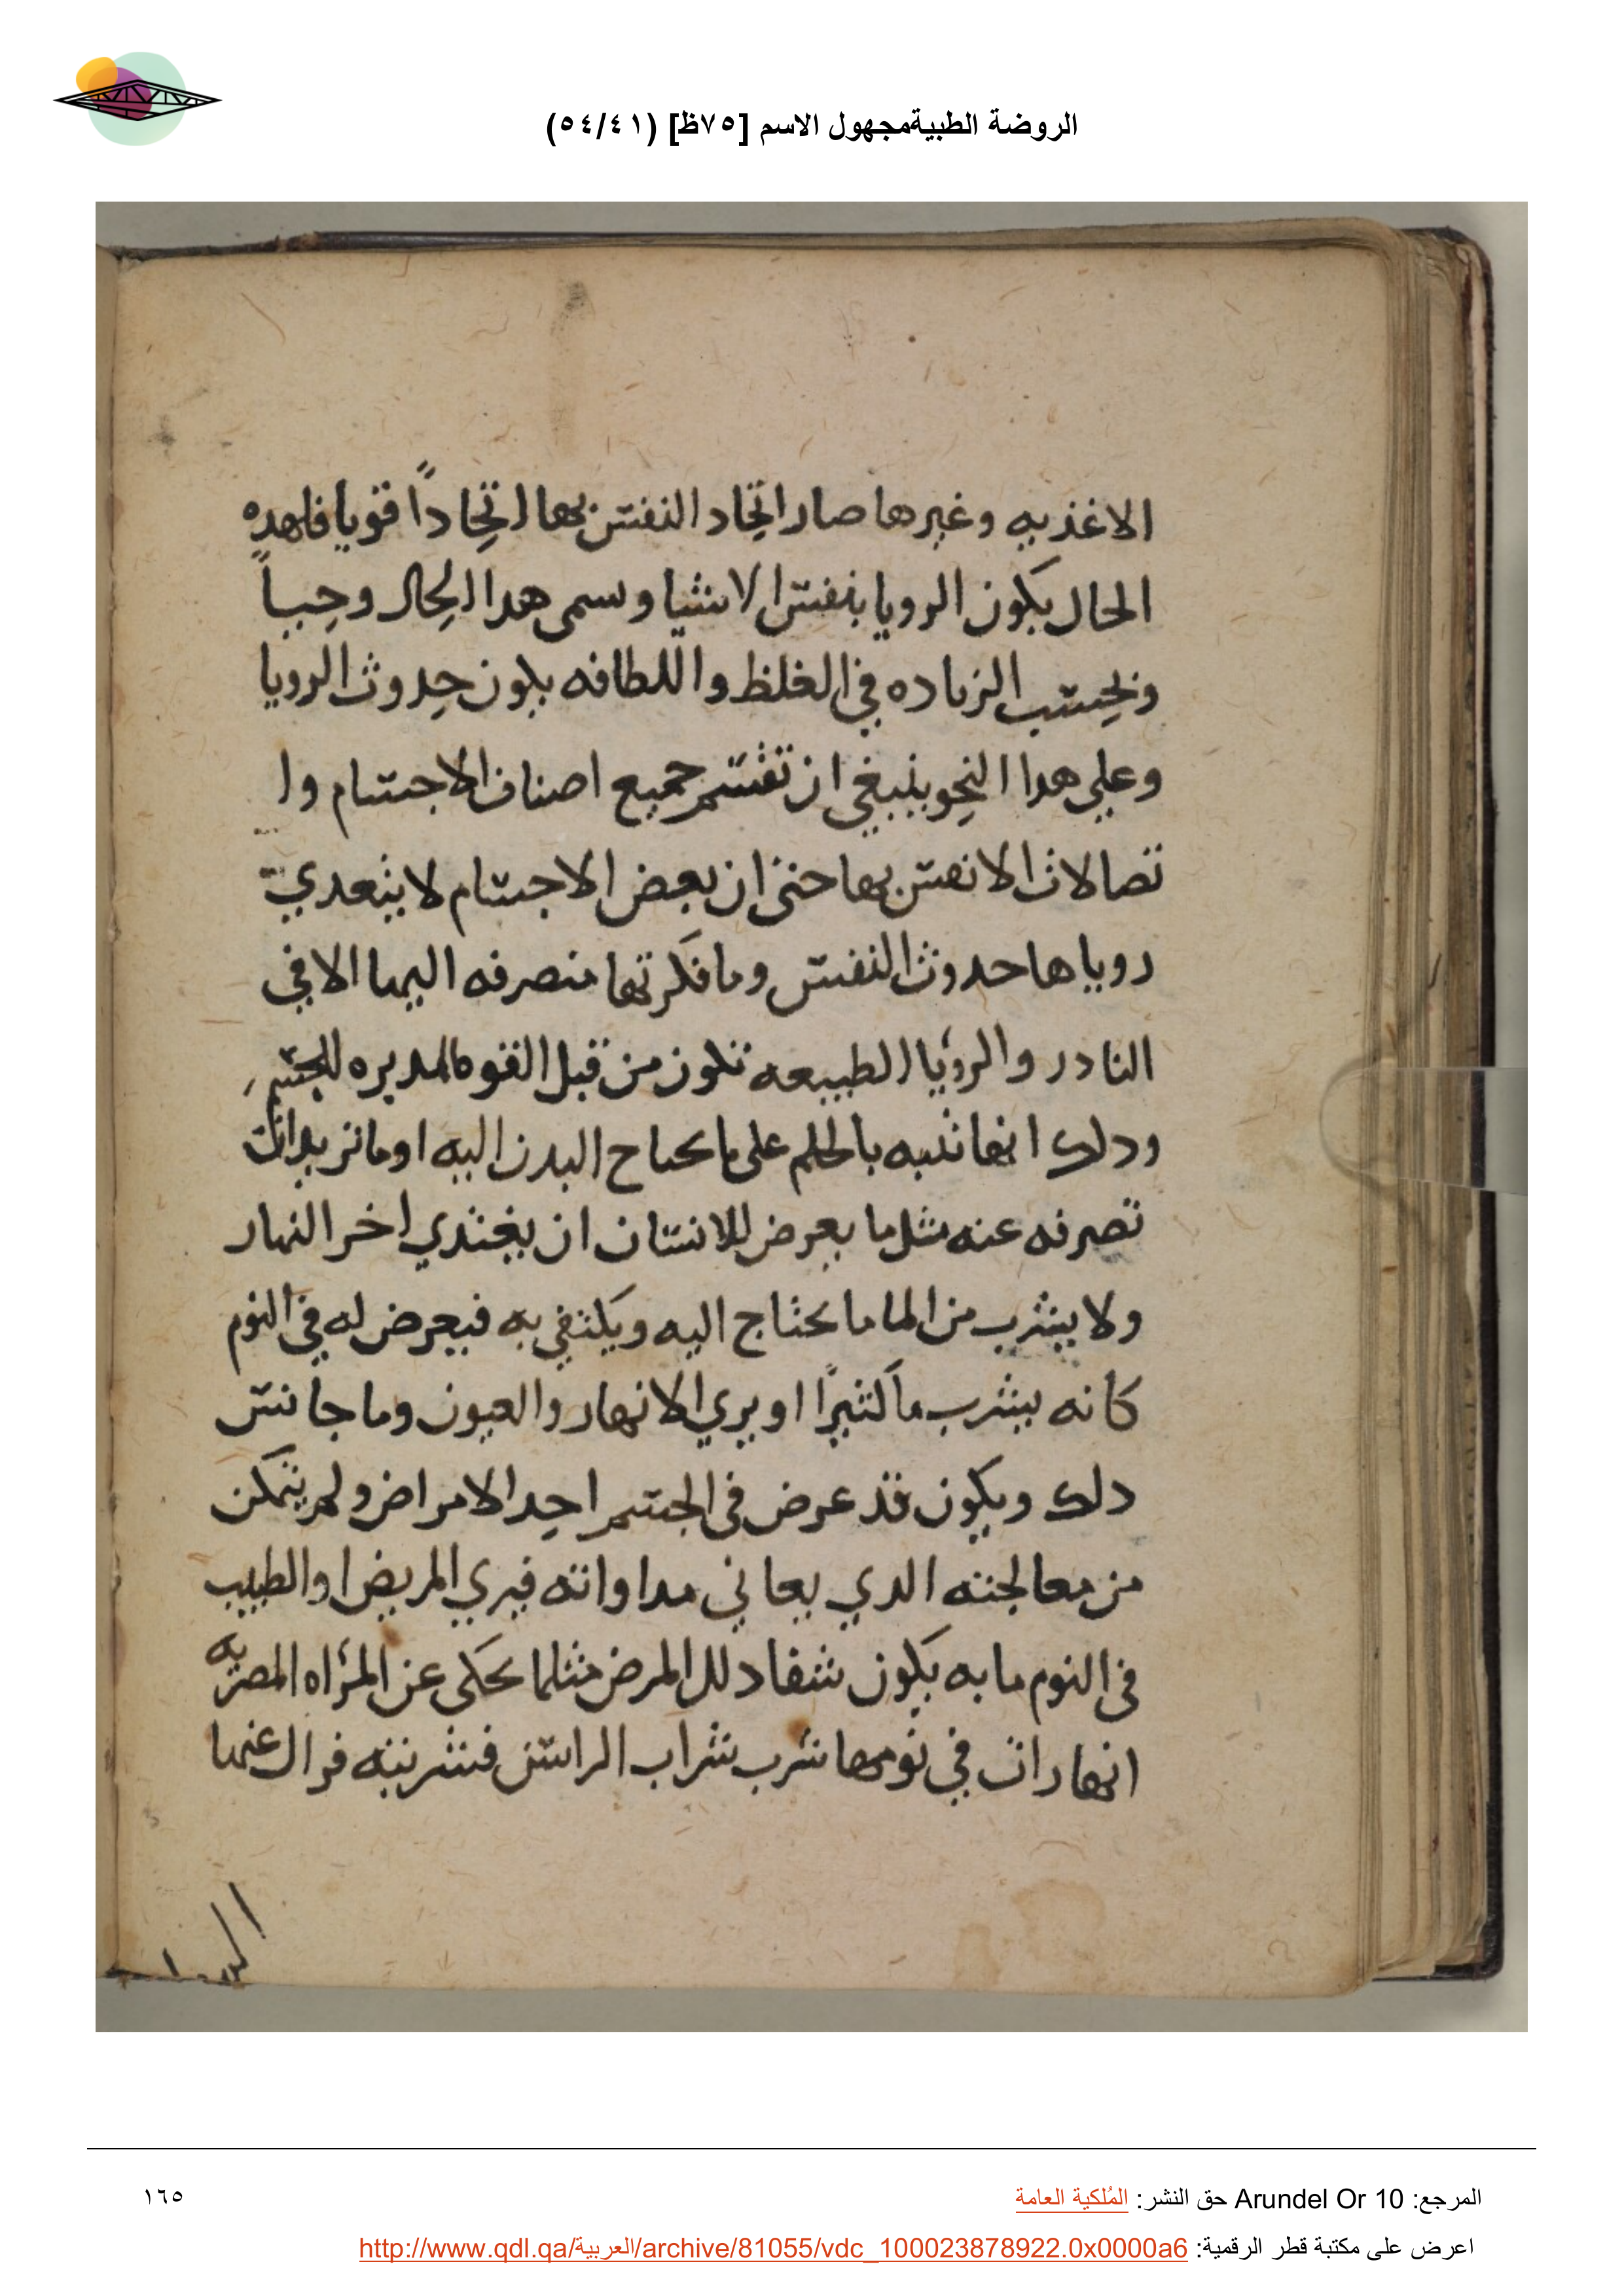 الروضة الطبيةمجهول الاسم [٧٥ظ] (٥٤/٤١)
الاغذيه وغيرها صار اتِّحاد النفس بها اتِّحاداً قويا فلهده
الحال يكون الرويا بنفس الاشيا وسمى هدا الحال وحِيباً
وبحسب الزياده في الغلظ واللطافه يكون حدوث الرويا
وعلي هدا النحو ينبغي ان تقسم جميع اصناف الاجسام وا
تصالات الانفس بها حتى ان بعض الاجسام لا يتعدي
روياها حدوث النفس وما فكرتها منصرفه اليها الا في
النادر والرؤيا الطبيعه تكون من قبل القوه المدبره للجسم
ودلك انها تنبه بالحلم على ما يحتاج البدن اليه او ما تريد ان
تصرفه عنه مثل ما يعرض للانسان ان يغتدي اخر النهار
ولا يشرب من الما ما يحتاج اليه ويكتفي به فيعرض له في النوم
كانه يشرب مآ كثيرًا او يري الانهار والعيون وما جانس
دلك ويكون قد عرض في الجسم احد الامراض ولم يتمكن
من معالجته الدي يعاني مداواته فيري المريض او الطبيب
في النوم ما به يكون شفا دلك المرض مثلما يحكى عن المرأه المصريه
انها رات في نومها شرب شراب الراسن فشربته فزال عنها
المرجع: Arundel Or 10 حق النشر: المُلكية العامة
١٦٥
اعرض على مكتبة قطر الرقمية: http://www.qdl.qa/العربية/archive/81055/vdc_100023878922.0x0000a6